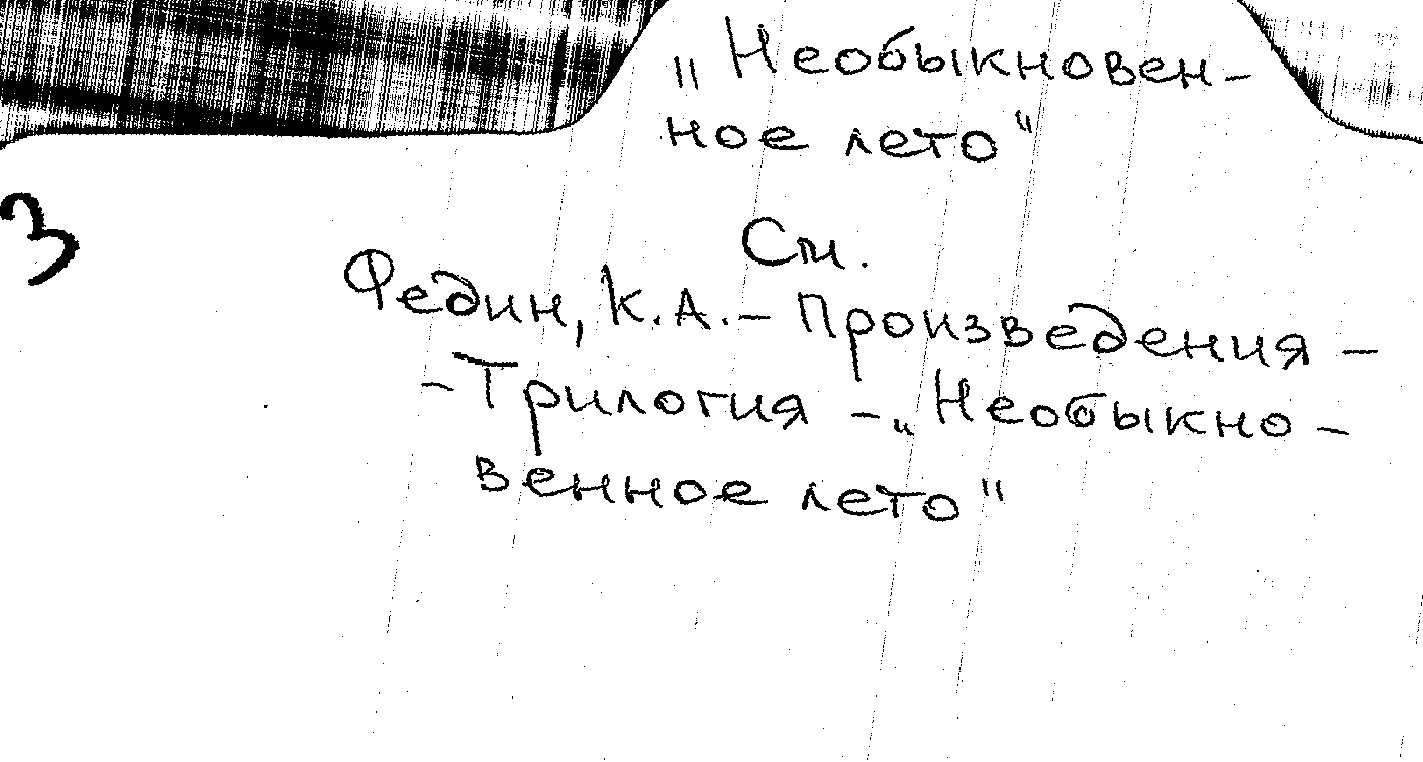 „Необыкновен-
ное лето"
3
См.
Федин, К.А.– Произведения –
– Трилогия – „Необыкно-
венное лето"